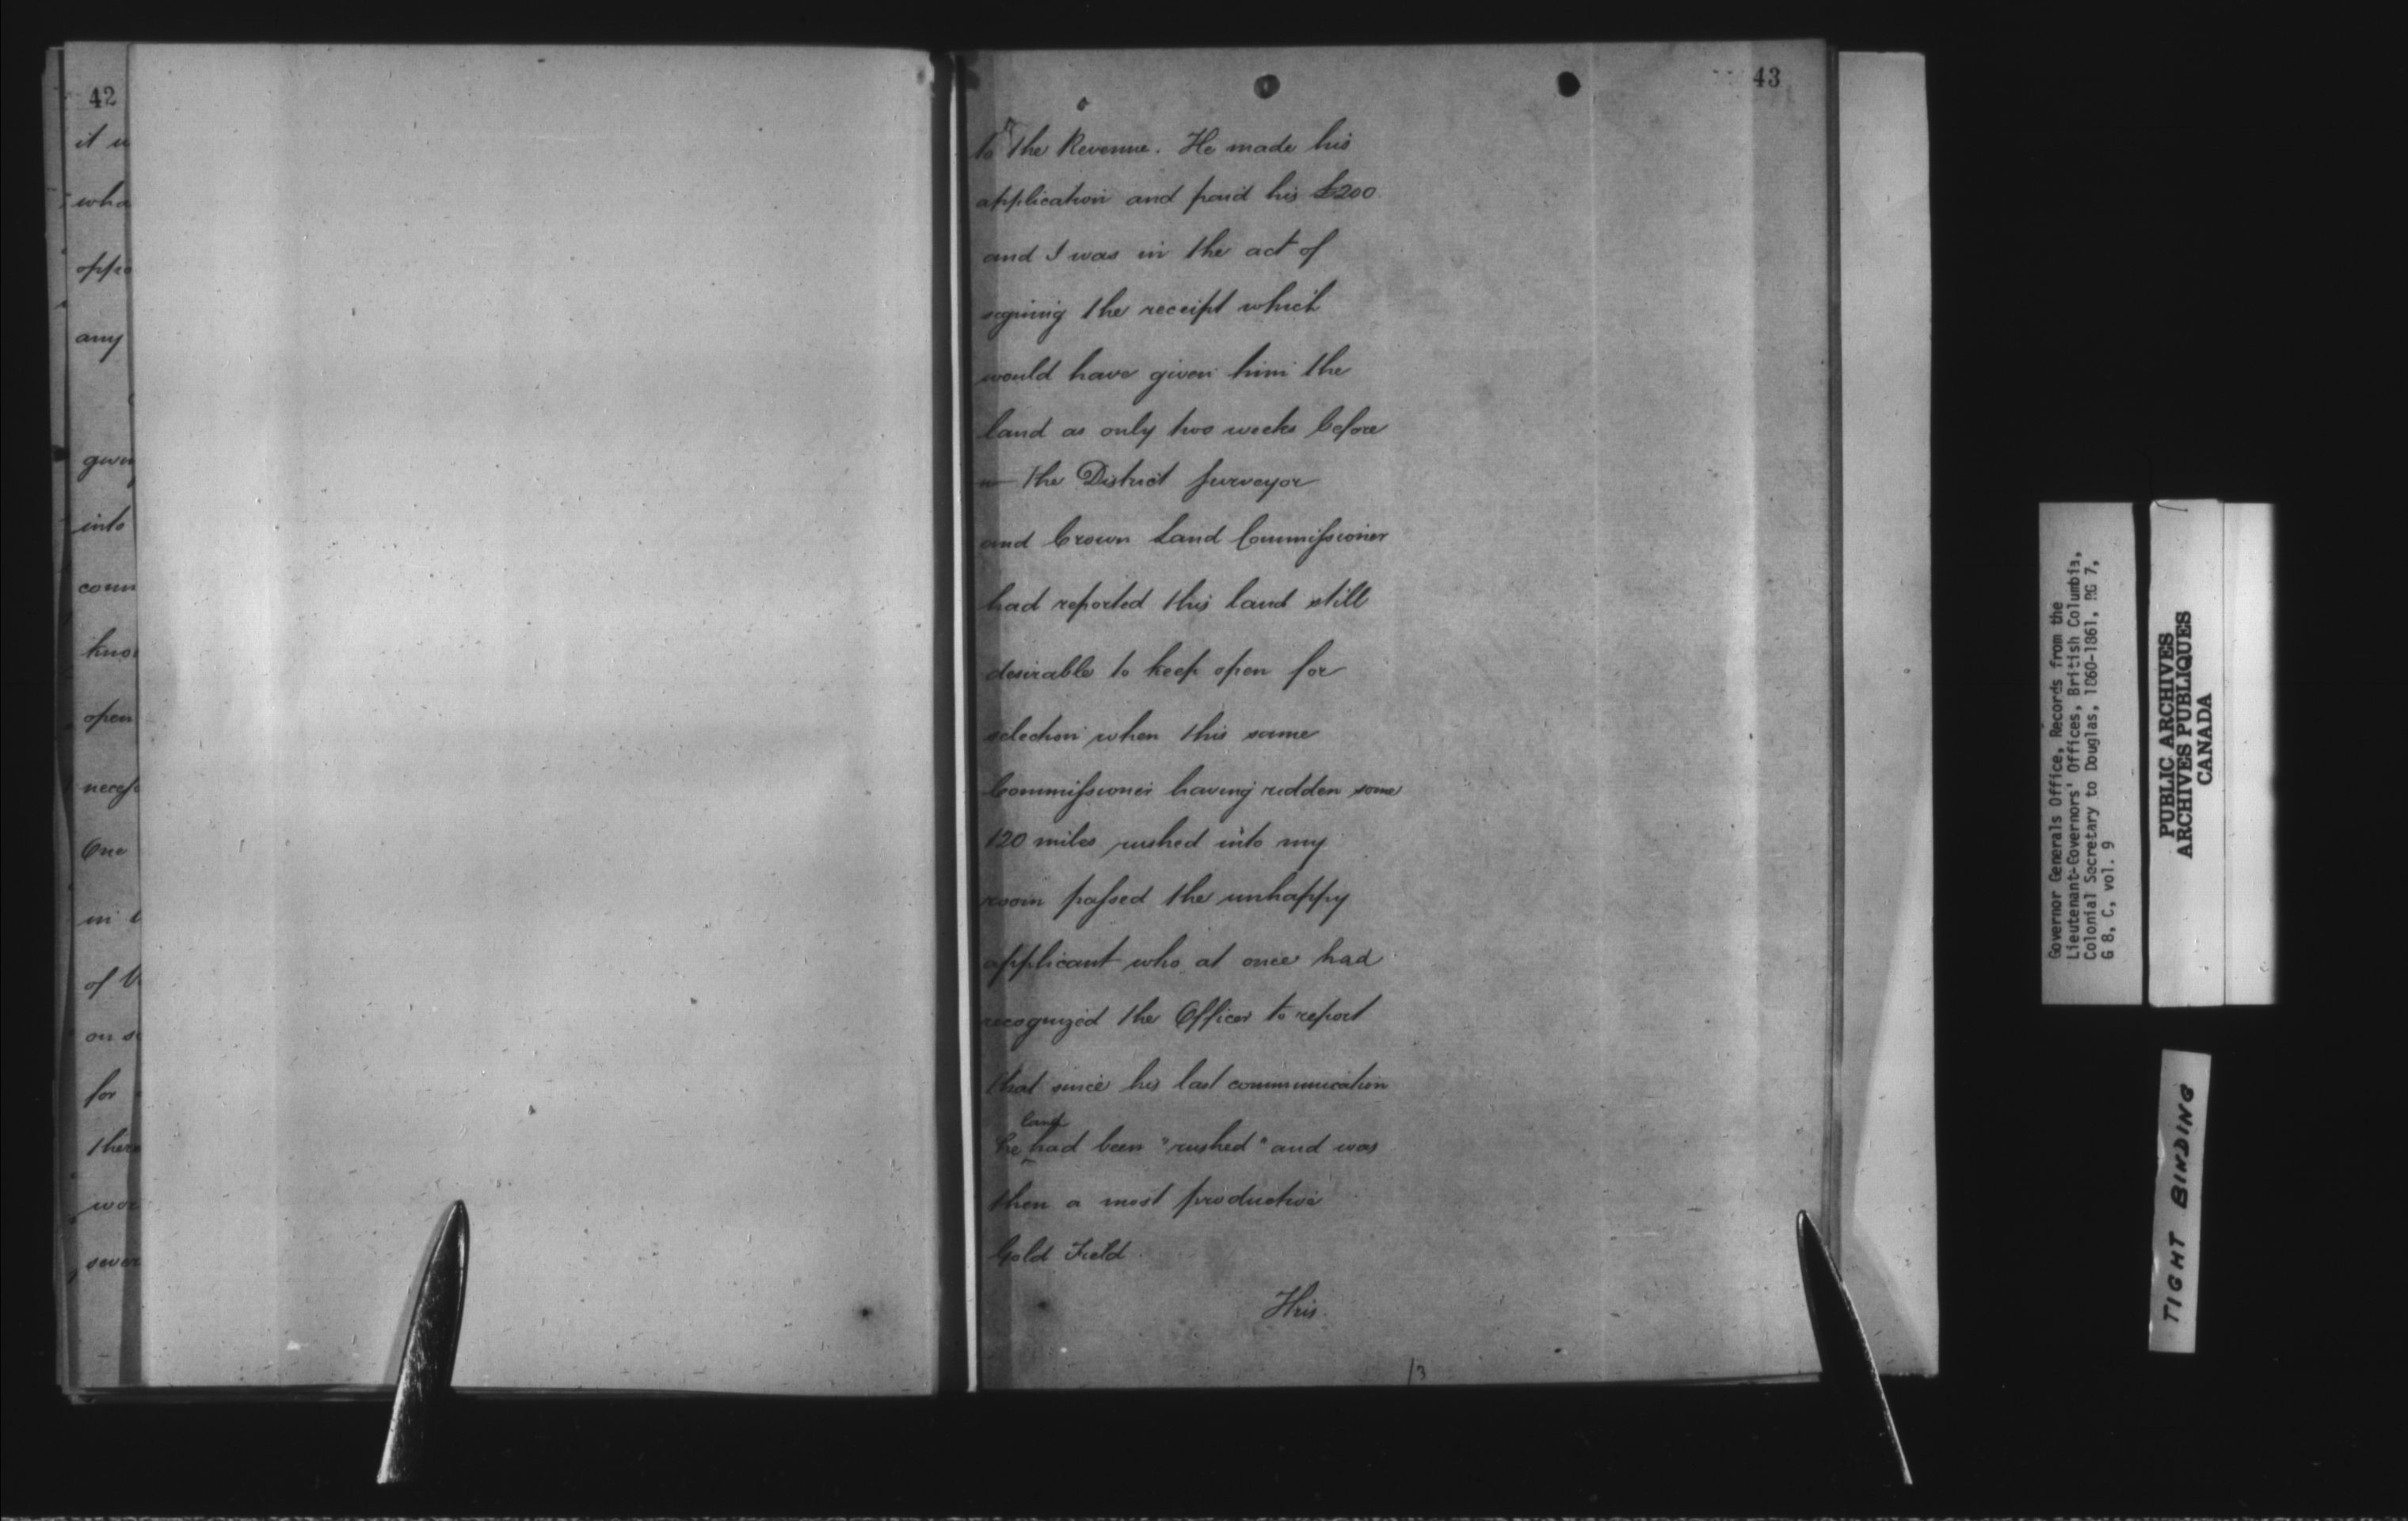 42
it w
who
oppo
any
given
into
coun
know
open
necess
One
in t
of V
on s
for
there
wor
sever
43
to the Revenue. He made his
application and paid his £200
and I was in the act of
signing the receipt which
would have given him the
land as only two weeks before
the District Surveyor
and Crown Land Commissioner
had reported this land still
desirable to keep open for
selection when this same
Commissioner having ridden some
120 miles rushed into my
room passed the unhappy
applicant who at once had
recognized the Officer to report
that since his last communication
land
he had been "rushed" and was
then a most productive
Gold Field.
This
13
Governor Generals Office, Records from the
Lieutenant-Governors' Offices, British Columbia,
Colonial Secretary to Douglas, 1860-1861, RG 7,
G 8, C, vol. 9
PUBLIC ARCHIVES
ARCHIVES PUBLIQUES
CANADA
TIGHT BINDING